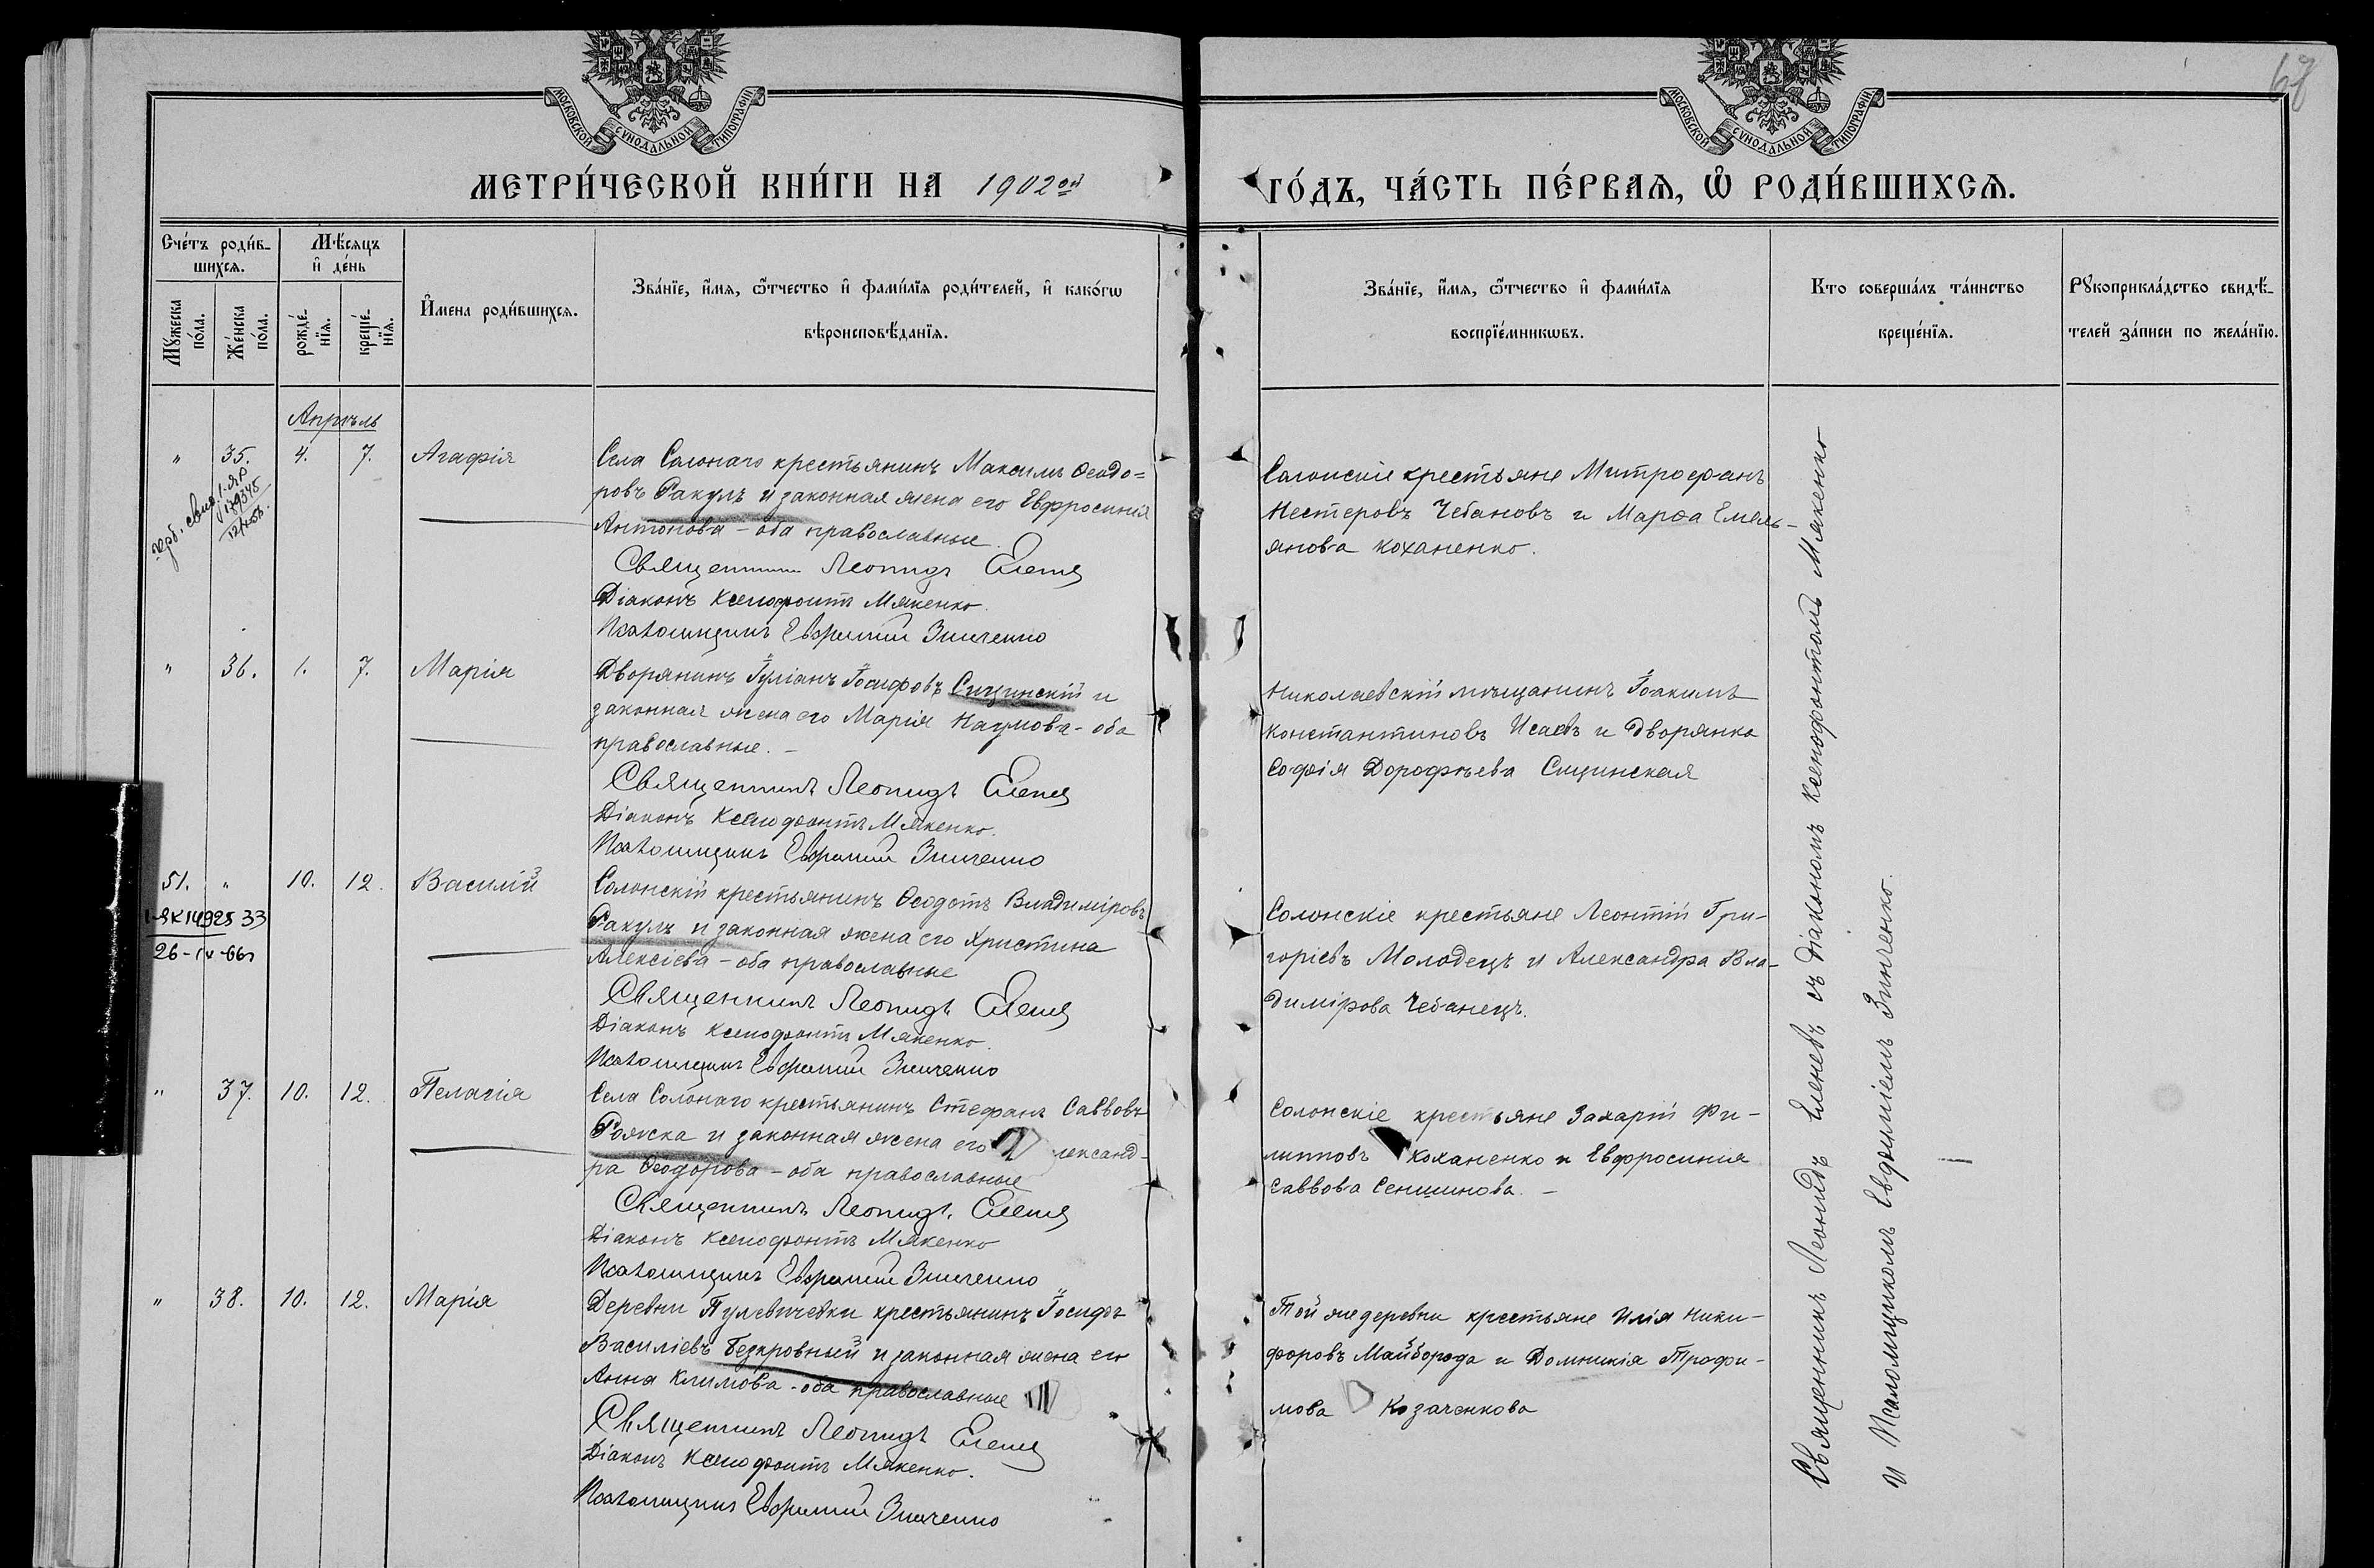 МОСКОВСКОЙ СѴНОДАЛЬНОЙ ТИПОГРАФІИ
МОСКОВСКОЙ СѴНОДАЛЬНОЙ ТИПОГРАФІИ
МЕТРИ́ЧЕСКОЙ КНИ́ГИ НА 1902ой ГО́ДЪ, ЧА́СТЬ ПЕ́РВАѦ, Ѡ҆ РОДИ́ВШИХСѦ.
Сче́тъ роди́в-
шихсѧ.
Мꙋ́жеска
по́ла.
Же́нска
по́ла.
Мѣ́сѧцъ
и҆ де́нь
рожде́-
нїѧ.
креще́-
нїѧ.
И҆мена роди́вшихсѧ.
Зва́нїе, и҆́мѧ, ѻ҆́тчество и҆ фами́лїѧ роди́телей, и҆ како́гѡ
вѣроисповѣ́данїѧ.
Зва́нїе, и҆́мѧ, ѻ҆́тчество и҆ фами́лїѧ
воспрїе́мникѡвъ.
Кто соверша́лъ та́инство
креще́нїѧ.
Рꙋкоприкла́дство свидѣ́-
телей за́писи по жела́нїю.
Апрѣль
" 35. 4. 7. Агафія
Села Солонаго крестьянинъ Максимъ Ѳеодо=
ровъ Ракулъ и законная жена его Евфросинія
Антонова - оба православные
Священникъ Леонидъ Еленевъ
Діаконъ Ксенофонтъ Мякенко.
Псаломщикъ Евфимій Зинченко
Солонскіе крестьяне Митрофанъ
Нестеровъ Чебановъ и Марѳа Емель-
янова Коханенко.
" 36. 1. 7. Марія
Дворянинъ Іуліанъ Іосифовъ Сицинскій и
законная жена его Марія Наумова - оба
православные. -
Священникъ Леонидъ Еленевъ
Діаконъ Ксенофонтъ Мякенко.
Псаломщикъ Евфимій Зинченко
Николаевскій мѣщанинъ Іоакимъ
Константиновъ Исаевъ и дворянка
Софія Дорофѣева Сицинская
51. " 10. 12. Василій
I-ЯК 14925 33
26-IV-66
Солонскій крестьянинъ Ѳеодотъ Владиміровъ
Ракулъ и законная жена его Христина
Алексіева - оба православные
Священникъ Леонидъ Еленевъ
Діаконъ Ксенофонтъ Мякенко.
Псаломщикъ Евфимій Зинченко
Солонскіе крестьяне Леонтій Гри-
горіевъ Молодецъ и Александра Вла-
димірова Чебанецъ.
" 37. 10. 12. Пелагія
Села Солонаго крестьянинъ Стефанъ Саввовъ
Рожска и законная жена его лександ-
ра Ѳеодорова - оба православные
Священникъ Леонидъ Еленевъ
Діаконъ Ксенофонтъ Мякенко
Псаломщикъ Евфимій Зинченко
Солонскіе крестьяне Захарій Фи-
липповъ Коханенко и Евфросинія
Саввова Сеншинова. -
" 38. 10. 12. Марія
Деревни Пулевичевки крестьянинъ Іосифъ
Василіевъ Безкровный и законная жена его
Анна Климова - оба православные
Священникъ Леонидъ Еленевъ
Діаконъ Ксенофонтъ Мякенко.
Псаломщикъ Евфимій Зинченко
Той же деревни крестьяне Илія Ники-
форовъ Майборода и Домникія Трофи-
мова Козаченкова
Священникъ Леонидъ Еленевъ съ діакономъ Ксенофонтомъ Мякенко
и Псаломщикомъ Евфиміемъ Зинченко.